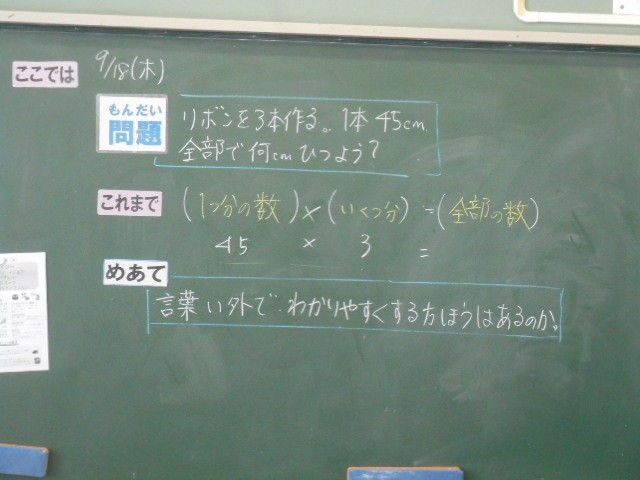 ここでは
9/18(木)
もんだい
問題
リボンを3本作る。1本45cm
全部で何cmひつよう?
これまで
(1つ分の数)×(いくつ分)=(全部の数)
45 × 3 =
めあて
言葉い外で、わかりやすくする方ほうはあるのか。